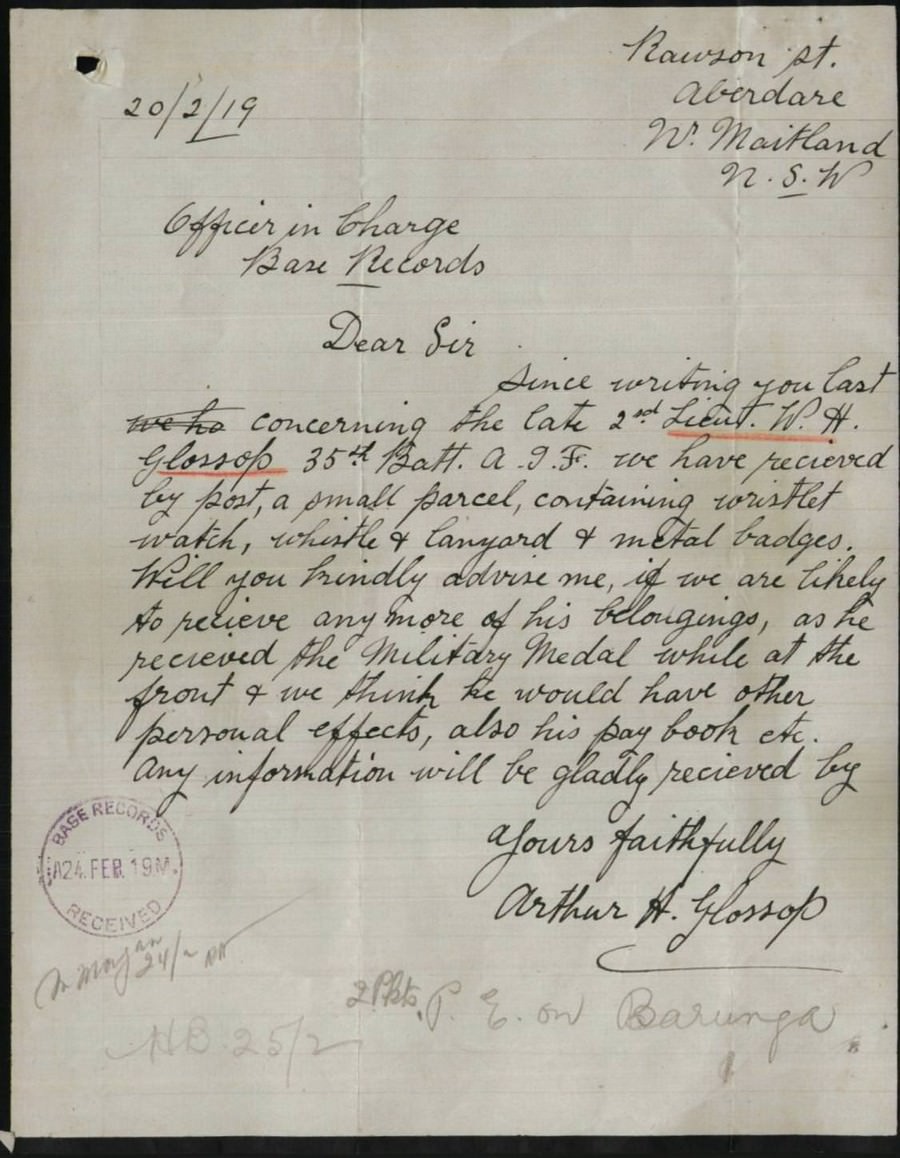 Rawson st.
20/2/19
Aberdare
Wt. Maitland
N.S.W
Officer in Charge
Base Records
Dear Sir
since writing you last
we ha concerning the late 2nd Lieut. W. H.
Glossop 35th Batt. A.I.F. we have recieved
by post, a small parcel, containing wristlet
watch, whistle & lanyard & metal badges.
Will you kindly advise me, if we are likely
to recieve any more of his belongings, as he
recieved the Military Medal while at the
front & we think he would have other
personal effects, also his pay book etc.
Any information will be gladly recieved by
Yours faithfully
Arthur H. Glossop
BASE RECORDS
A24. FEB. 19M.
RECEIVED
24/2
2 Pkts. P. E. on Barunga
HB 25/2